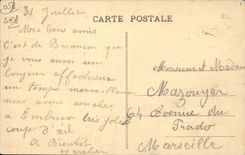 31 Juillet
CARTE POSTALE
Mes bons amis
C'est de Briançon que
je vous envoi un
bonjour affectueux
un temps merveilleux
nous avons
a Embrun très jolie
coup d'œil
a Bientôt
Monsieur et Madame
Mazouyer
64 Avenue du
Prado
Marseille